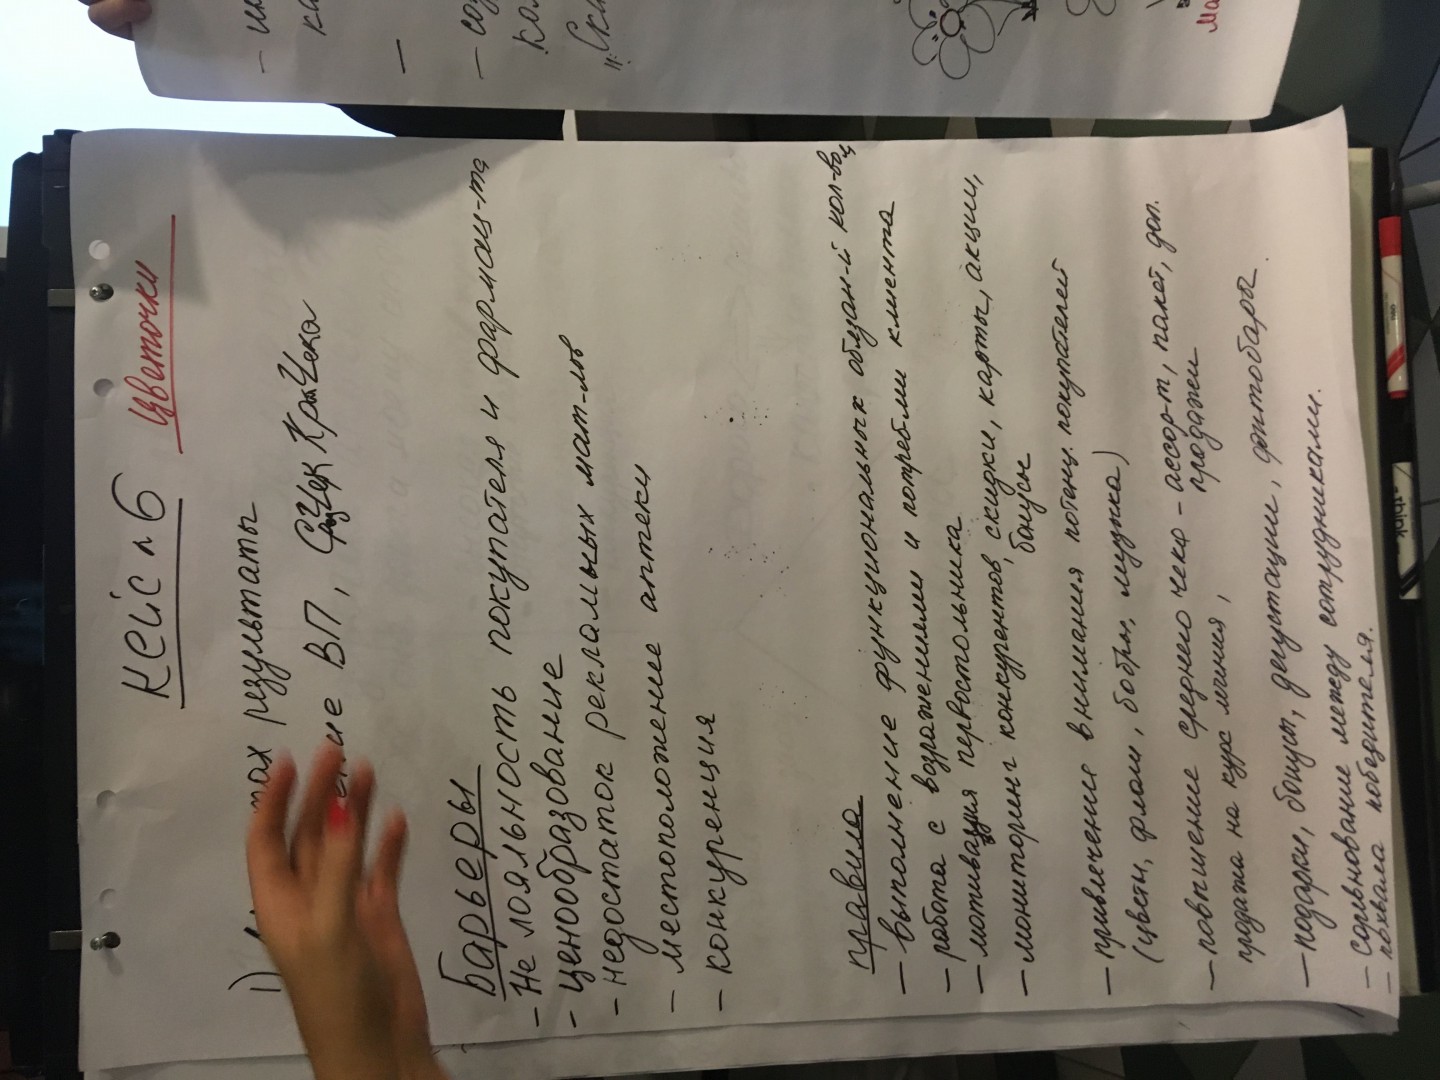 Кейс №6 Цветочки
1)
результаты
ВП,
Барьеры
- Не лояльность покупателя и фармац-та
- ценообразование
- недостаток рекламных мат-лов
- местоположение аптеки
- конкуренция
правила
- выполнение функциональных обязан-й кол-во
- работа с возражениями и потребн клиента
- мотивация первостольника
- мониторинг конкурентов, скидки, карты, акции,
бонусы
- привлечение внимания потенц. покупателей
(цветы, флаги, бобры, музыка)
- повышение среднего чека - ассорт-т, пакет, доп.
продажи
продажа на курс лечения,
- подарки, бонусы, дегустации, фитобары.
- соревнование между сотрудниками.
- похвала победителя.